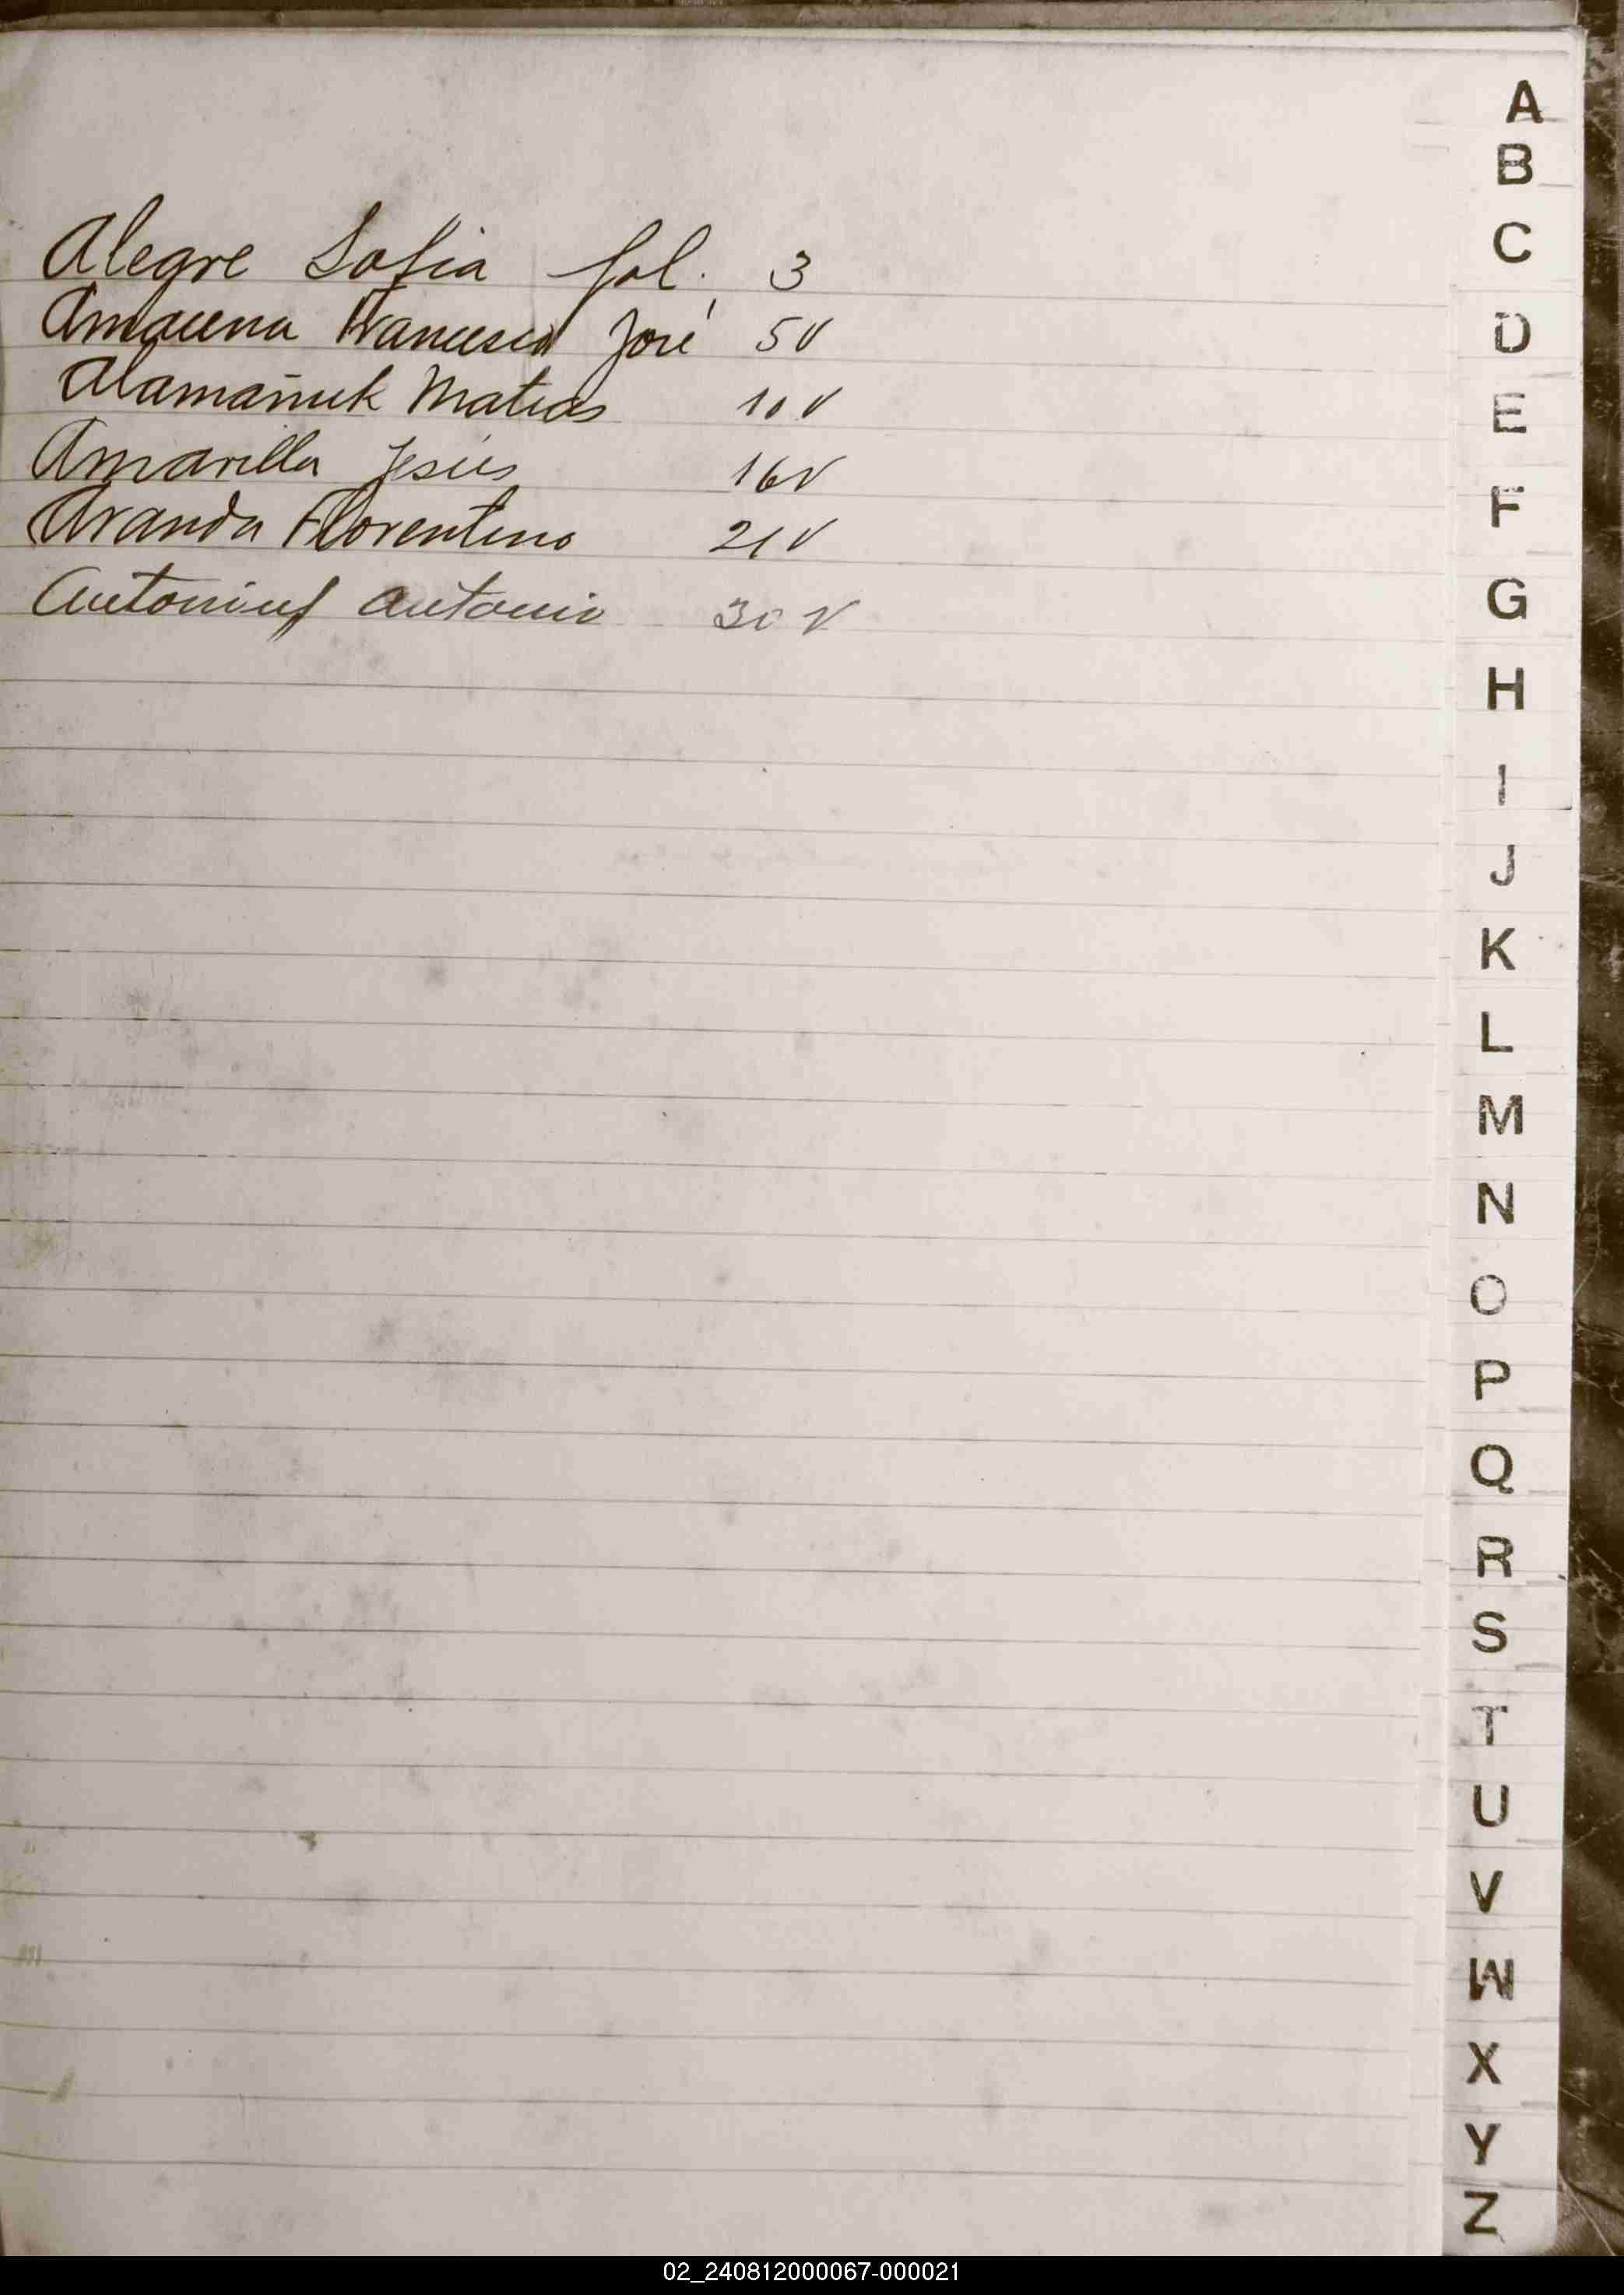 Alegre Sofia fol. 3
Francisco José 5v
Matias 10v
Amarilla Jesús 16v
Aranda Florentino 21v
Antonio 30v
A
B
C
D
E
F
G
H
I
J
K
L
M
N
O
P
Q
R
S
T
U
V
W
X
Y
Z
02_240812000067-000021